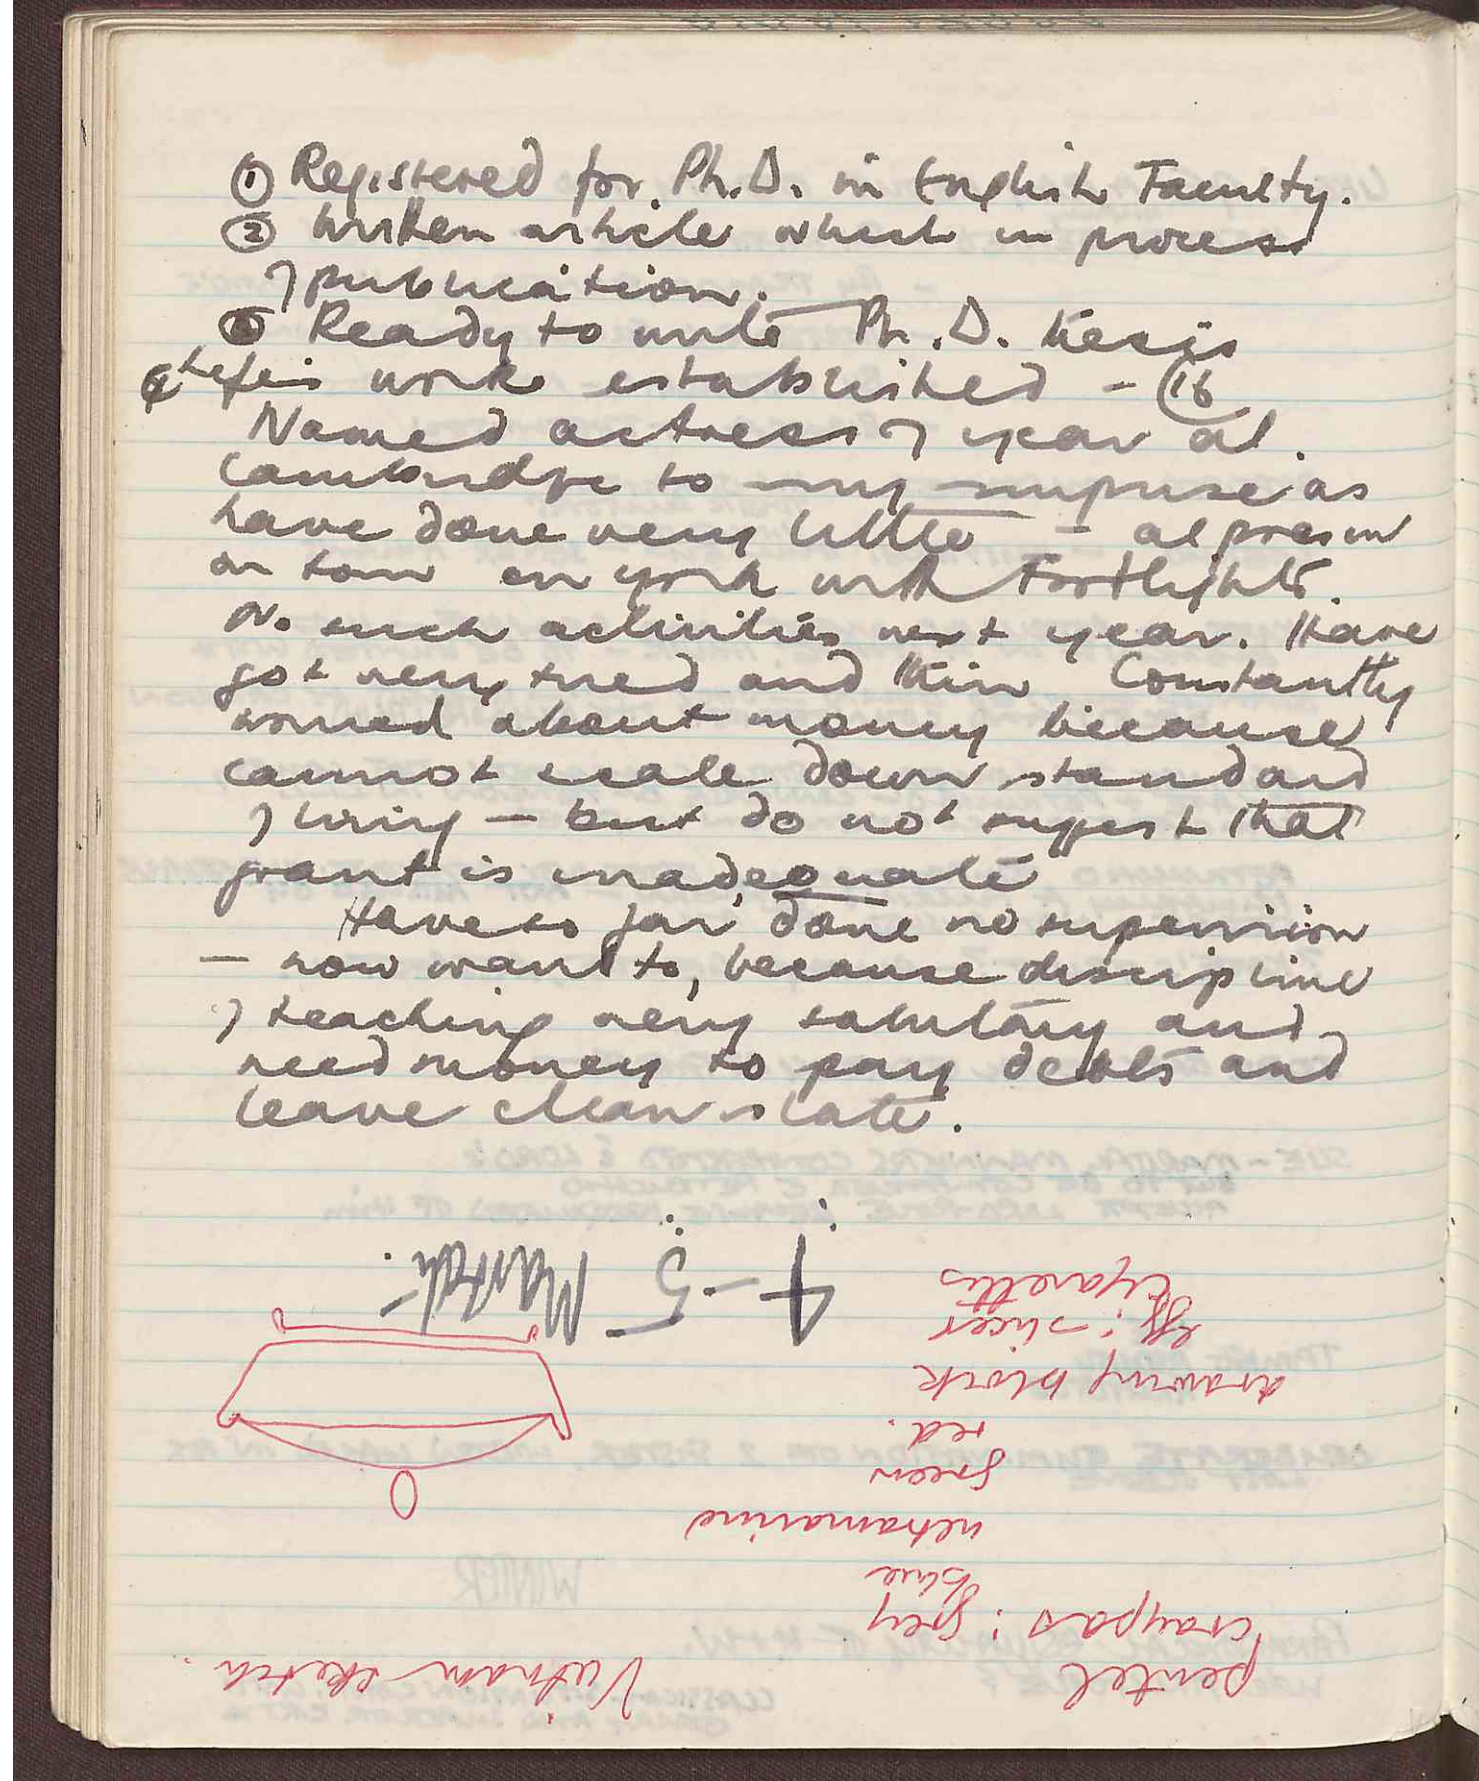 ① Registered for Ph.D. in English Faculty.
② Written article which in process
of publication.
③ Ready to write Ph.D. thesis
④ work established - 16
Named actress of year at
Cambridge to my surprise as
have done very little - at present
on tour en york with Footlights.
No such activities next year. Have
got very tired and thin Constantly
worried about money because
cannot scale down standard
of living - but do not suggest that
grant is inadequate
Have so far done no supervision
- now want to, because discipline
of teaching very salutary and
need money to pay debts and
leave clean slate.
pentel Vietnam sketch.
craypas: grey
blue
ultramarine
green
red.
drawing block
egg: slicer
cigarettes
4-5 Martdr.